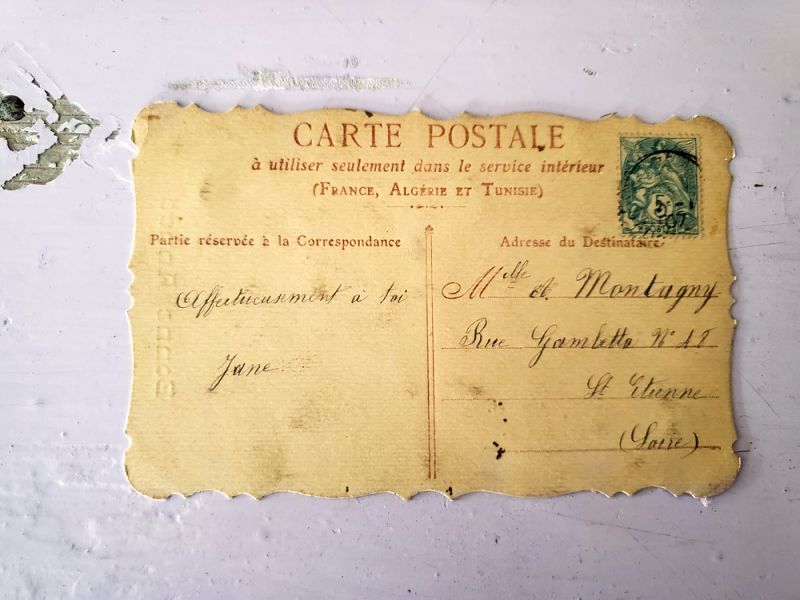 CARTE POSTALE
à utiliser seulement dans le service intérieur
(FRANCE, ALGÉRIE ET TUNISIE)
Partie réservée à la Correspondance
Affectueusement à toi
Jane
Adresse du Destinataire
Mlle de Montagny
Rue Gambetta N° 18
St Etienne
(Loire)
5
07